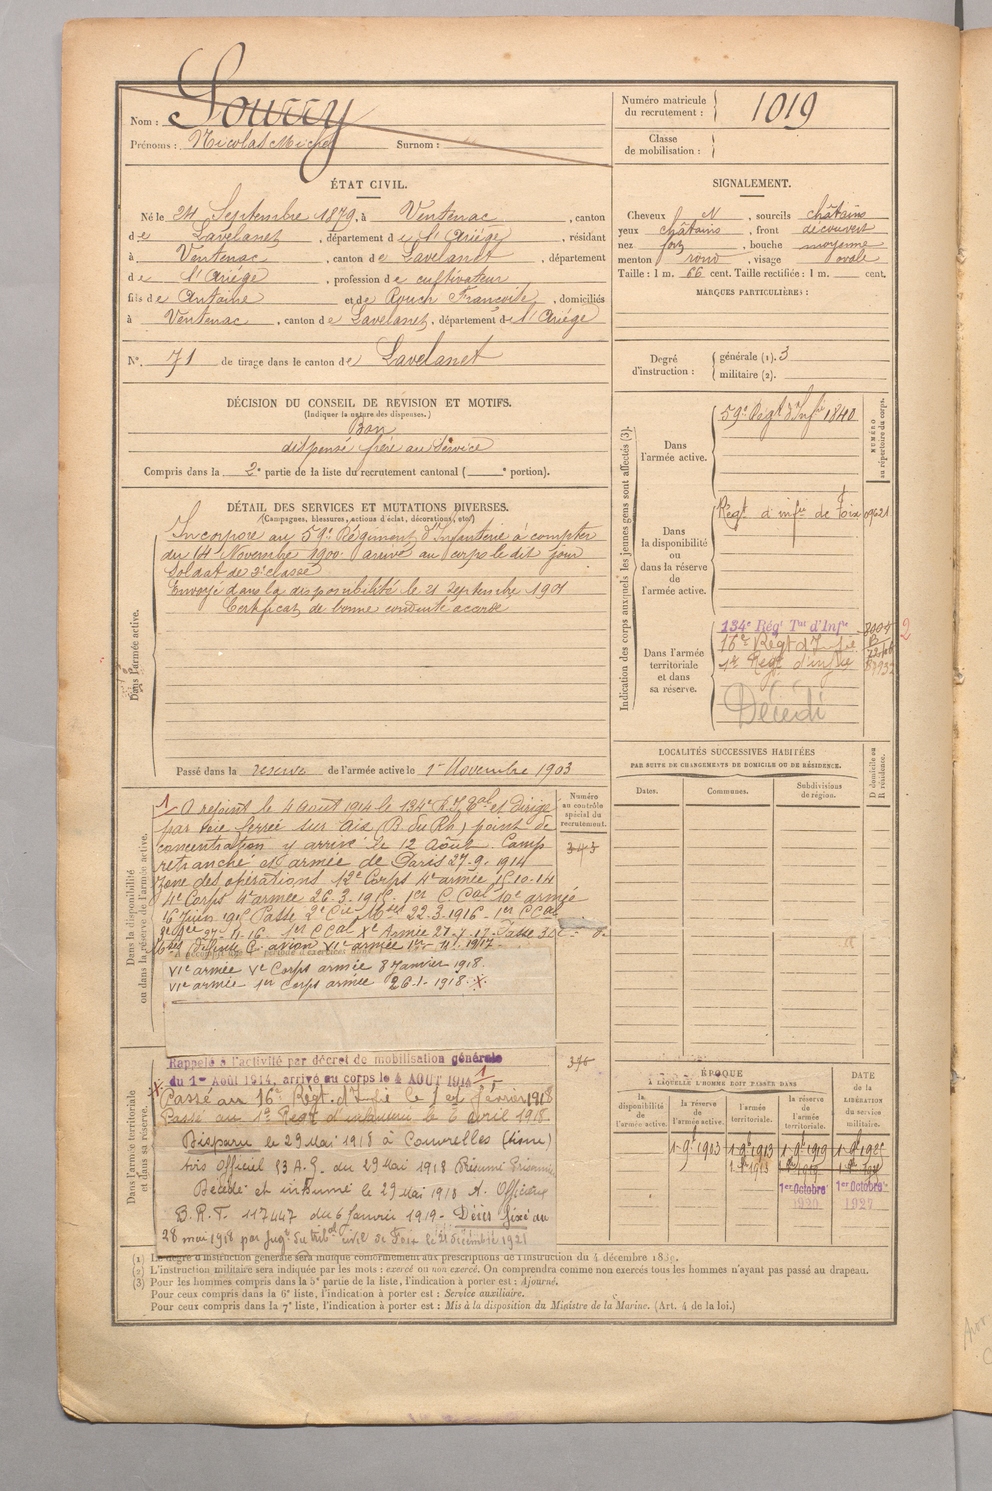 Nom :
Prénoms : Nicolas Michel Surnom :
Numéro matricule
du recrutement :
1019
Classe
de mobilisation :
ÉTAT CIVIL.
Né le 24 Septembre 1879, à Ventenac, canton
de Lavelanet, département de l'Ariège, résidant
à Ventenac, canton de Lavelanet, département
de l'Ariège, profession de cultivateur
fils de Antoine et de Rouch Françoise, domiciliés
à Ventenac, canton de Lavelanet, département de l'Ariège
N°. 71 de tirage dans le canton de Lavelanet
SIGNALEMENT.
Cheveux N, sourcils châtains
yeux châtains, front découvert
nez fort, bouche moyenne
menton rond, visage ovale
Taille : 1 m. 66 cent. Taille rectifiée : 1 m. cent.
MARQUES PARTICULIÈRES :
Degré
d'instruction :
générale (1). 3
militaire (2).
DÉCISION DU CONSEIL DE REVISION ET MOTIFS.
(Indiquer la nature des dispenses.)
Bon
dispensé frère au service
Compris dans la 2e partie de la liste du recrutement cantonal ( e portion).
DÉTAIL DES SERVICES ET MUTATIONS DIVERSES.
(Campagnes, blessures, actions d'éclat, décorations, etc.)
Dans l'armée active.
Incorporé au 59e Régiment d'Infanterie à compter
du 14 Novembre 1900. arrivé au corps le dit jour
Soldat de 2e classe
Envoyé dans la disponibilité le 21 Septembre 1901
Certificat de bonne conduite accordé
Passé dans la réserve de l'armée active le 1er Novembre 1903
Indication des corps auxquels les jeunes gens sont affectés (3).
NUMÉRO
au répertoire du corps.
Dans
l'armée active.
59e Régt d'Infie 1840
Dans
la disponibilité
ou
dans la réserve
de
l'armée active.
Régt d'infie de Foix 09621
Dans l'armée
territoriale
et dans
sa réserve.
134e Régt Tal d'Infie
16e Régt d'Infie
1er Régt d'infie
Décédé
2
LOCALITÉS SUCCESSIVES HABITÉES
PAR SUITE DE CHANGEMENTS DE DOMICILE OU DE RÉSIDENCE.
Dates.
Communes.
Subdivisions
de région.
D domicile ou
R résidence.
Dans la disponibilité
ou dans la réserve de l'armée active.
Numéro
au contrôle
spécial du
recrutement.
343
1 A rejoint le 4 août 1914 le 134e R.I. Tal et dirigé
par voie ferrée sur Aix (B. du Rh.) point de
concentration y arrivé le 12 Août. Camp
retranché et armée de Paris 27-9-1914
Zone des opérations 12e Corps 4e armée 15-10-14
4e Corps 4e armée 26-3-1915. 1er C. Cal 10e armée
16 juin 1915 Passé 2e Cie Mses 22-3-1916 - 1er C Cal
VIe armée Ve Corps armée 8 Janvier 1918.
VIe armée - 1er Corps armée 26-1-1918. x.
Dans l'armée territoriale
et dans sa réserve.
376
Rappelé à l'activité par décret de mobilisation générale
du 1er Août 1914, arrivé au corps le 4 AOUT 1914 1
Passé au 16e Régt. d'Infie le 1er Février 1918
Passé au 1er Régt d'infanterie le 6 avril 1918.
Disparu le 29 Mai 1918 à Couvrelles (Aisne)
avis Officiel du 29 Mai 1918 Présumé Prisonnier
Décédé et inhumé le 29 Mai 1918 A. Officiel
B.R.T. 117447 du 6 Janvier 1919 - Décès fixé au
28 mai 1918 par jugt du tribal civil de Foix le 21 décembre 1921
ÉPOQUE
À LAQUELLE L'HOMME DOIT PASSER DANS
la
disponibilité
de
l'armée active.
la réserve
de
l'armée active.
l'armée
territoriale.
la réserve
de
l'armée
territoriale.
DATE
de la
LIBÉRATION
du service
militaire.
1er Octobre
1920
1er Octobre
1927
(1) Le degré d'instruction générale sera indiqué conformément aux prescriptions de l'instruction du 4 décembre 1889.
(2) L'instruction militaire sera indiquée par les mots : exercé ou non exercé. On comprendra comme non exercés tous les hommes n'ayant pas passé au drapeau.
(3) Pour les hommes compris dans la 5e partie de la liste, l'indication à porter est : Ajourné.
Pour ceux compris dans la 6e liste, l'indication à porter est : Service auxiliaire.
Pour ceux compris dans la 7e liste, l'indication à porter est : Mis à la disposition du Ministre de la Marine. (Art. 4 de la loi.)